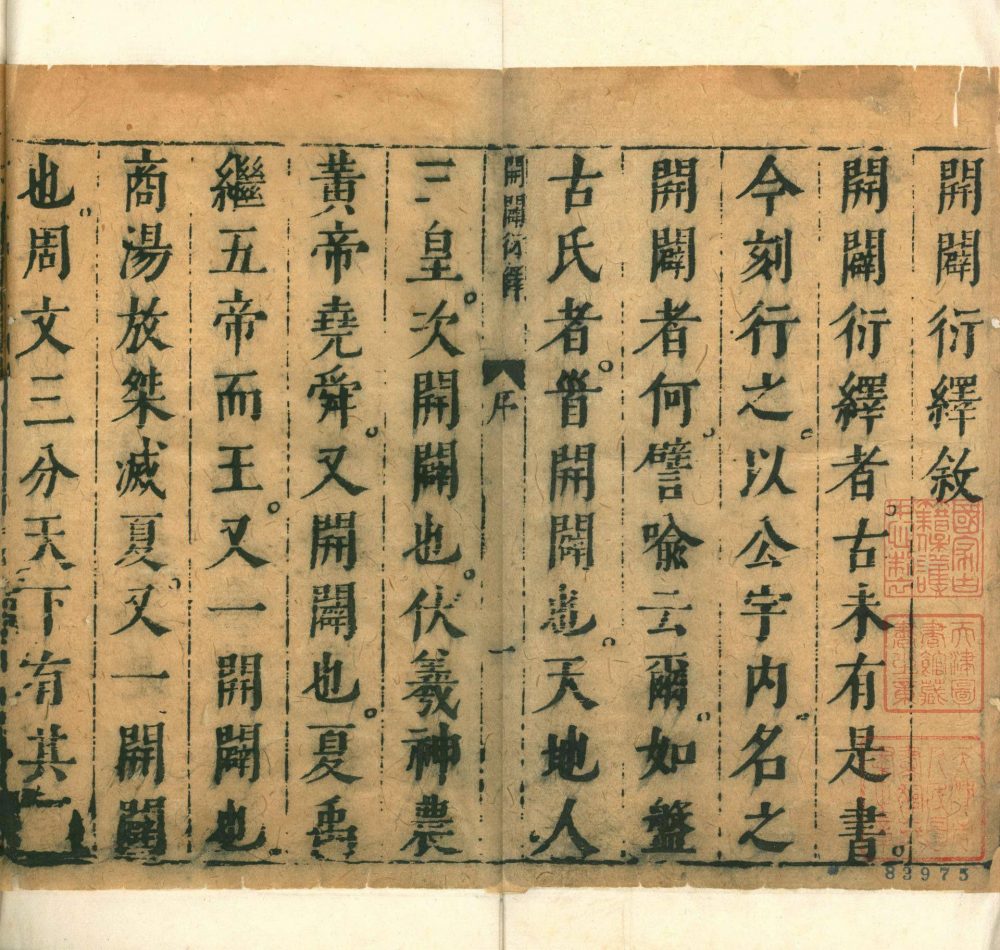 開闢衍繹敘
開闢衍繹者。古未有是書。
今刻行之。以公宇内。名之
開闢者何。譬喻云爾。如盤
古氏者。首開闢也。天地人
開闢衍繹 序 一
三皇。次開闢也。伏羲神農
黄帝堯舜。又開闢也。夏禹
繼五帝而王。又一開闢也
商湯放桀滅夏。又一開闢
也。周文三分天下有其二
天津圖書館藏書之章
83975